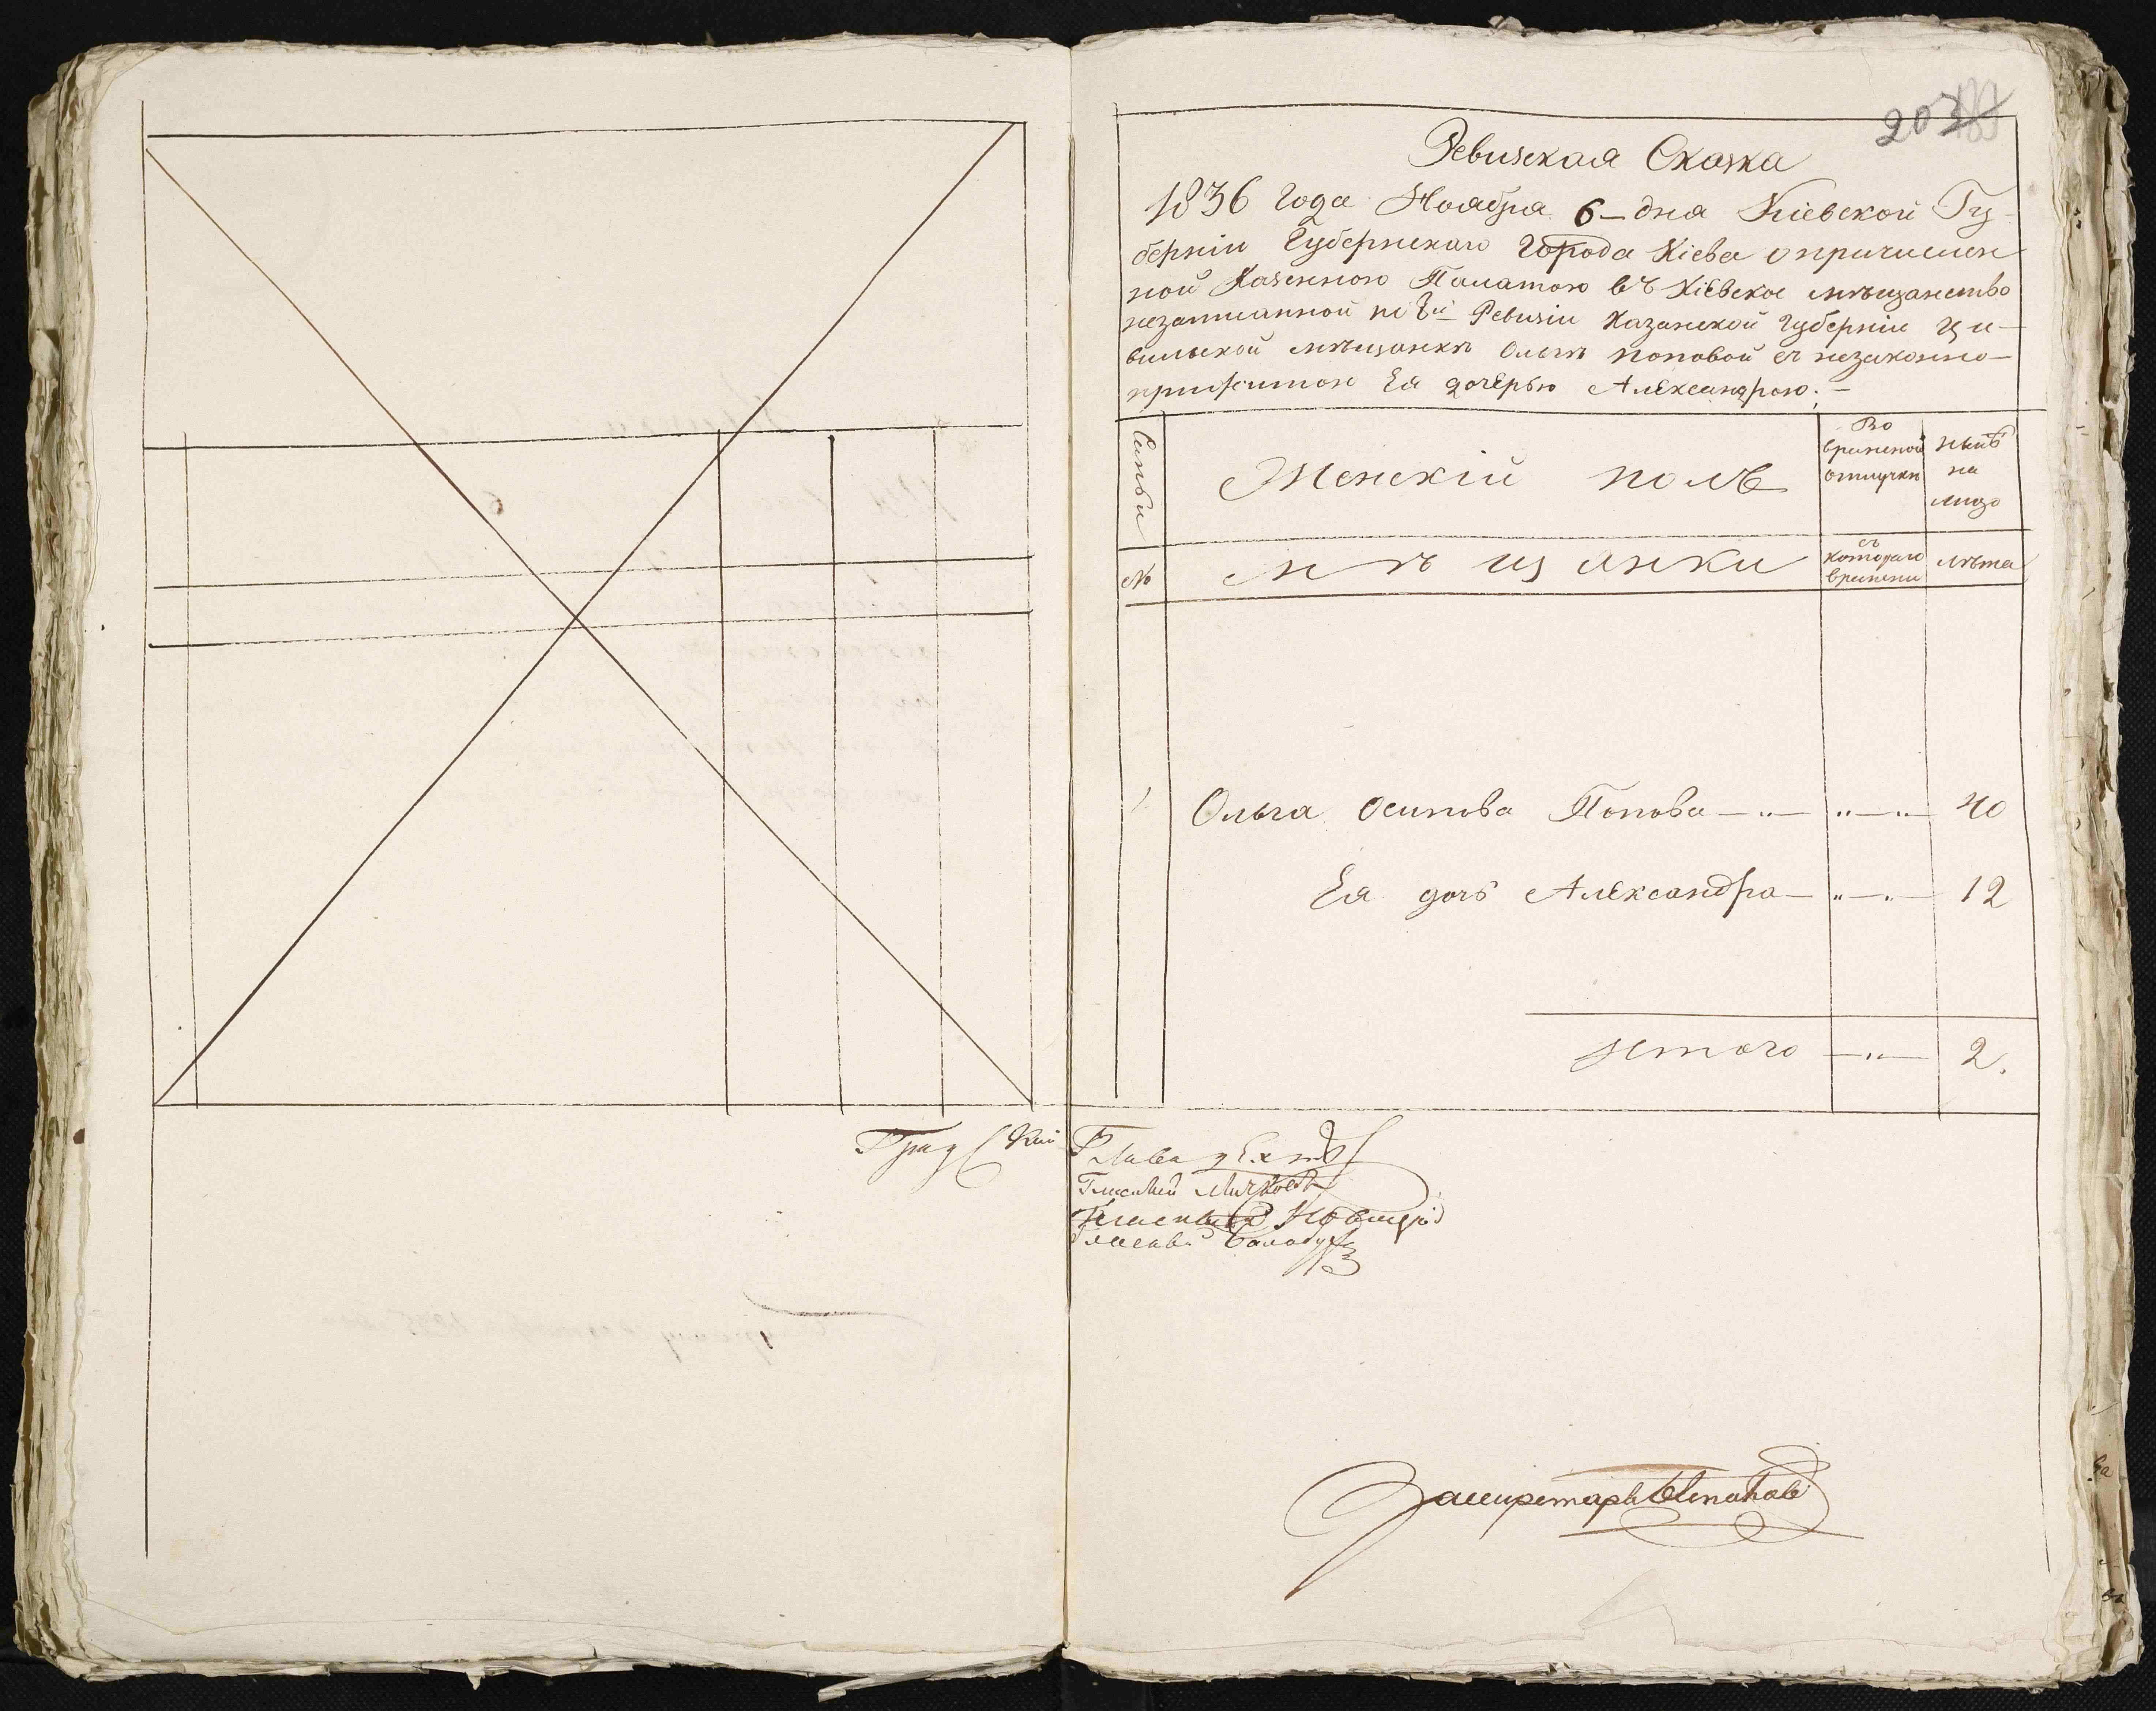 203
Ревизская Сказка
1836 года Ноября 6 – дня Кіевской Гу-
берніи Губернскаго Города Кіева о причислен
ной Казенною Палатою въ Кіевское мѣщанство
незаписанной по 8й Ревизіи Казанской Губерніи Ци-
вильской мѣщанкѣ Ольгѣ Поповой съ незаконно-
прижитою Ея дочерью Александрою. –
Семьи
Женскій полъ
Во временной отлучкѣ
нынѣ на лицо
№
мѣщанки
съ котораго времени
лѣта
1 Ольга Осипова Попова — „ — „ — „ — 40
Ея дочь Александра — „ — „ — 12
Итого — „ — 2.
Градскій Глава
Гласный
Гласный
Гласный